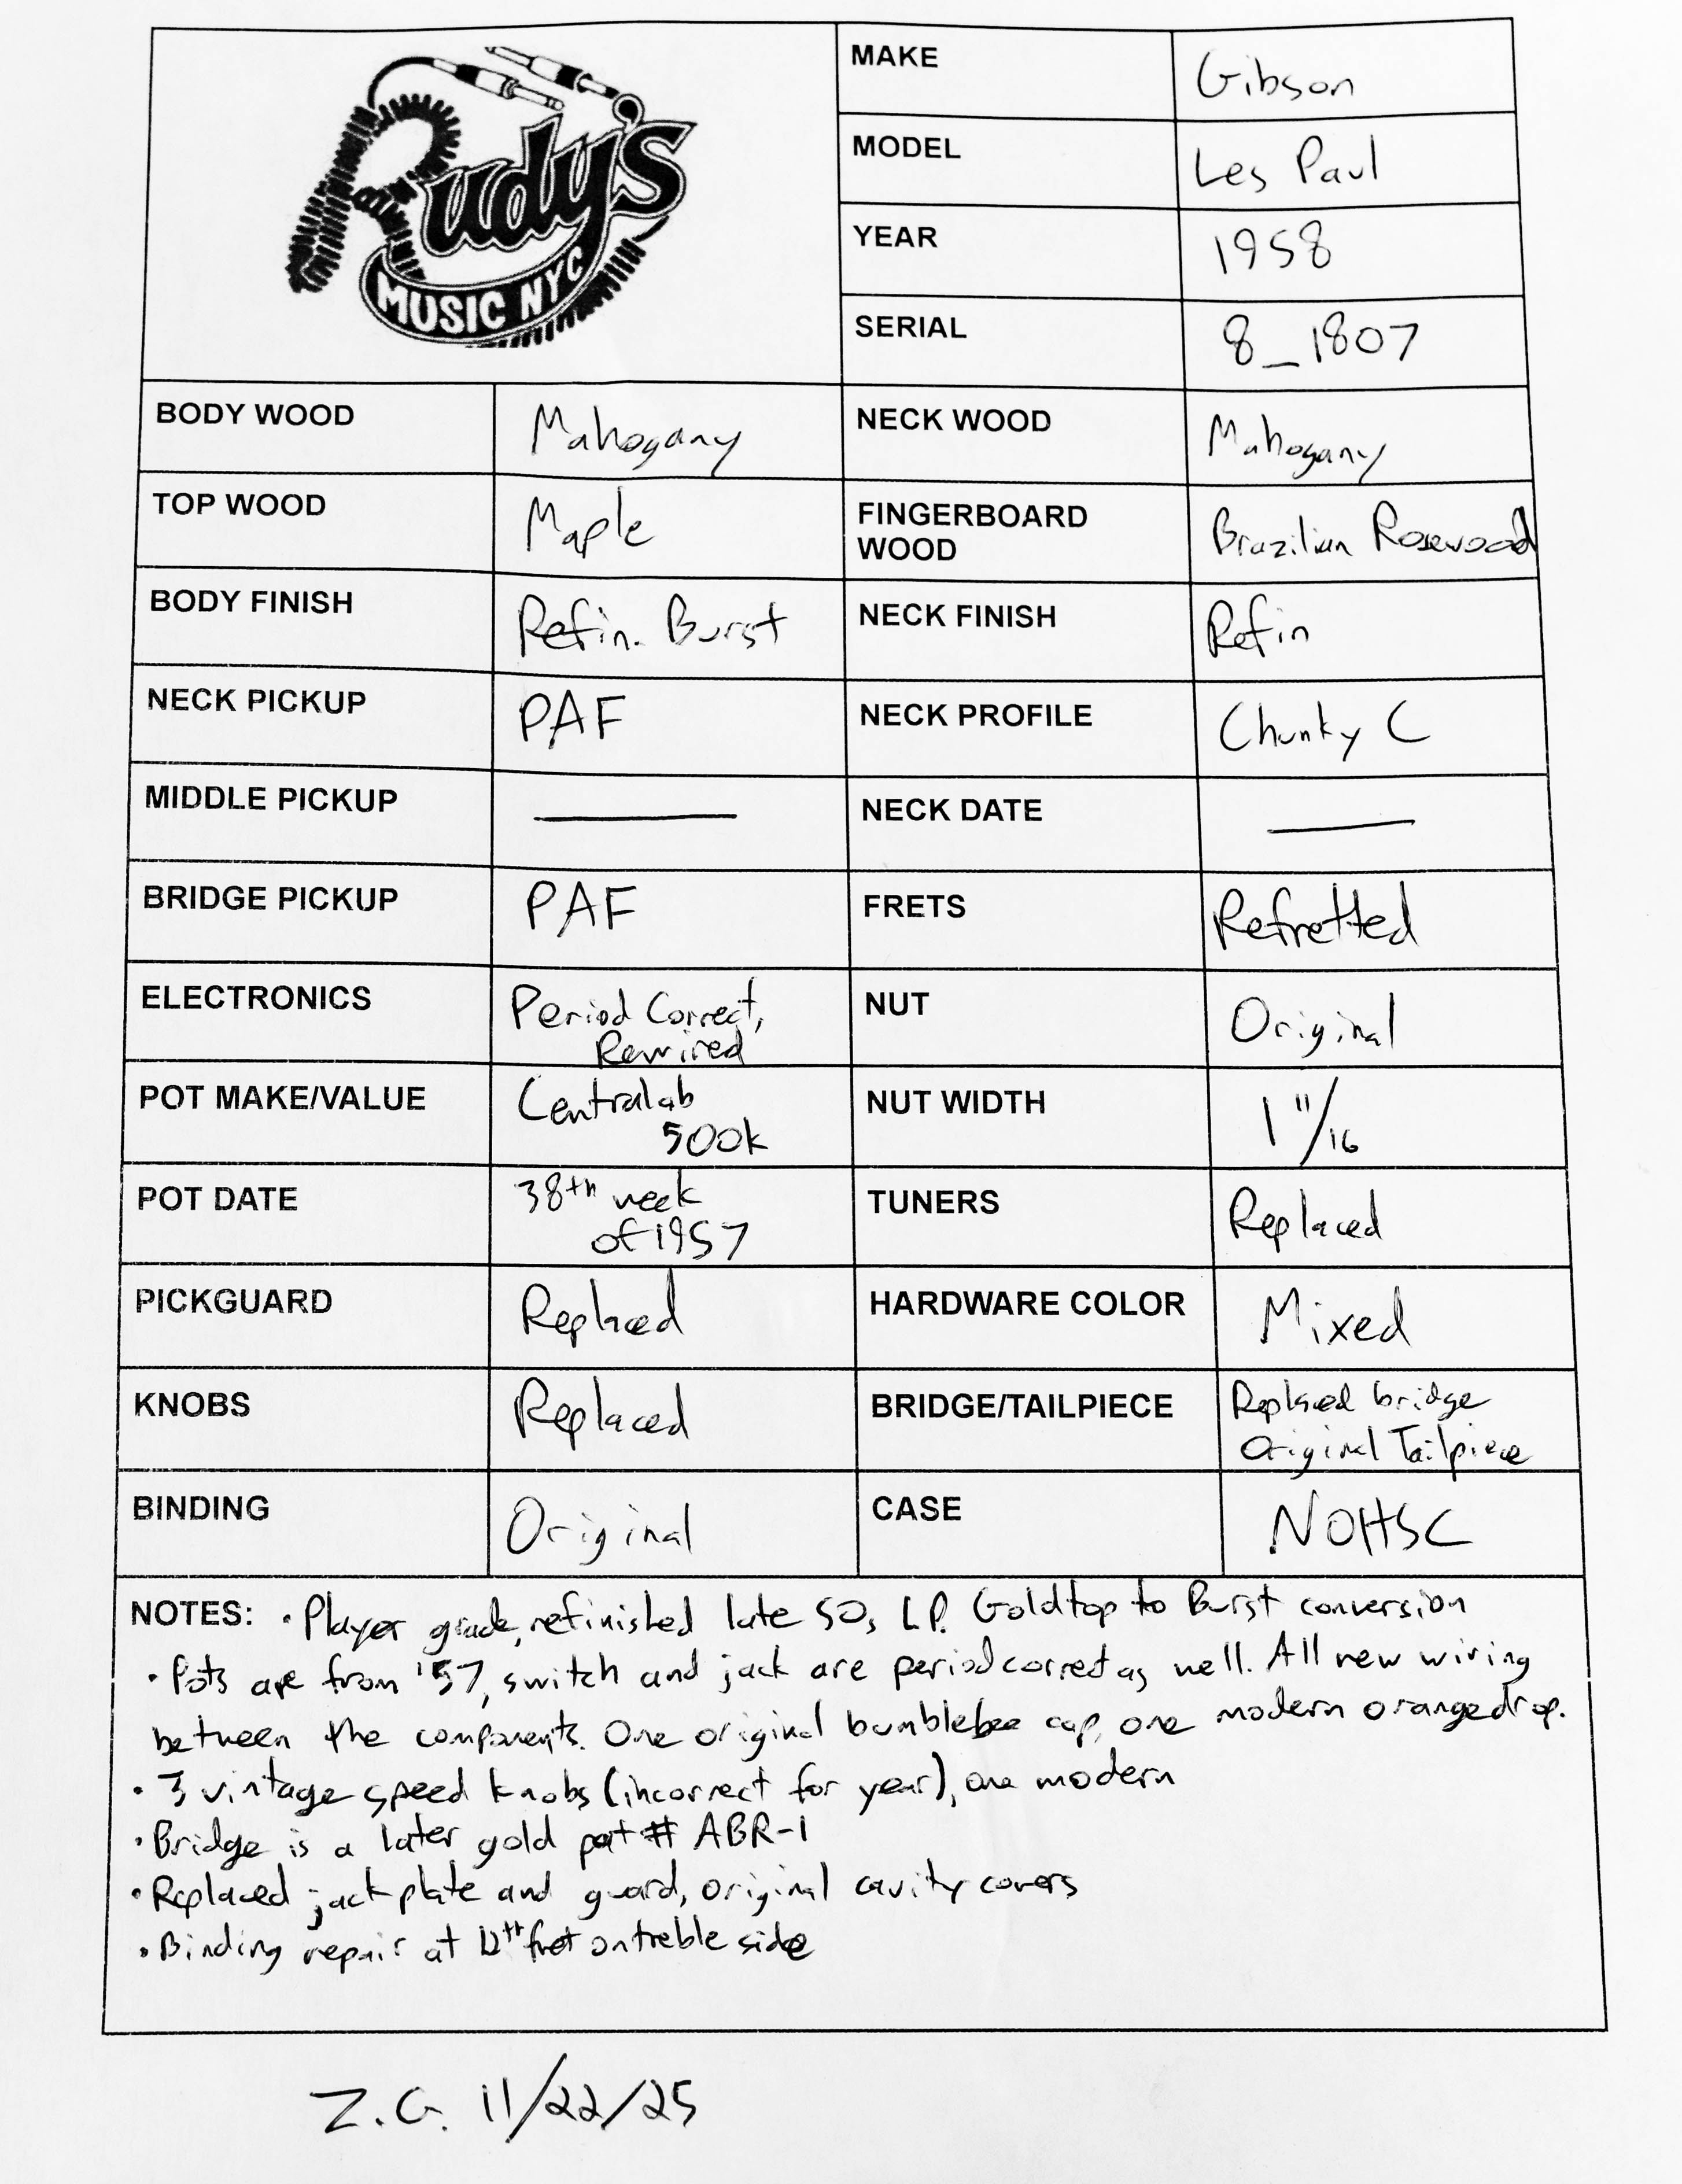 Rudy's
MUSIC NYC
MAKE Gibson
MODEL Les Paul
YEAR 1958
SERIAL 8_1807
BODY WOOD Mahogany NECK WOOD Mahogany
TOP WOOD Maple FINGERBOARD WOOD Brazilian Rosewood
BODY FINISH Refin. Burst NECK FINISH Refin
NECK PICKUP PAF NECK PROFILE Chunky C
MIDDLE PICKUP —— NECK DATE ——
BRIDGE PICKUP PAF FRETS Refretted
ELECTRONICS Period Correct, Rewired NUT Original
POT MAKE/VALUE Centralab 500k NUT WIDTH 1 11/16
POT DATE 38th week of 1957 TUNERS Replaced
PICKGUARD Replaced HARDWARE COLOR Mixed
KNOBS Replaced BRIDGE/TAILPIECE Replaced bridge Original Tailpiece
BINDING Original CASE NOHSC
NOTES: • Player grade, refinished late 50s L.P. Goldtop to Burst conversion
• Pots are from '57, switch and jack are period correct as well. All new wiring
between the components. One original bumblebee cap, one modern orange drop.
• 3 vintage speed knobs (incorrect for year), one modern
• Bridge is a later gold pat # ABR-1
• Replaced jack plate and guard, original cavity covers
• Binding repair at 12th fret on treble side
Z.G. 11/22/25